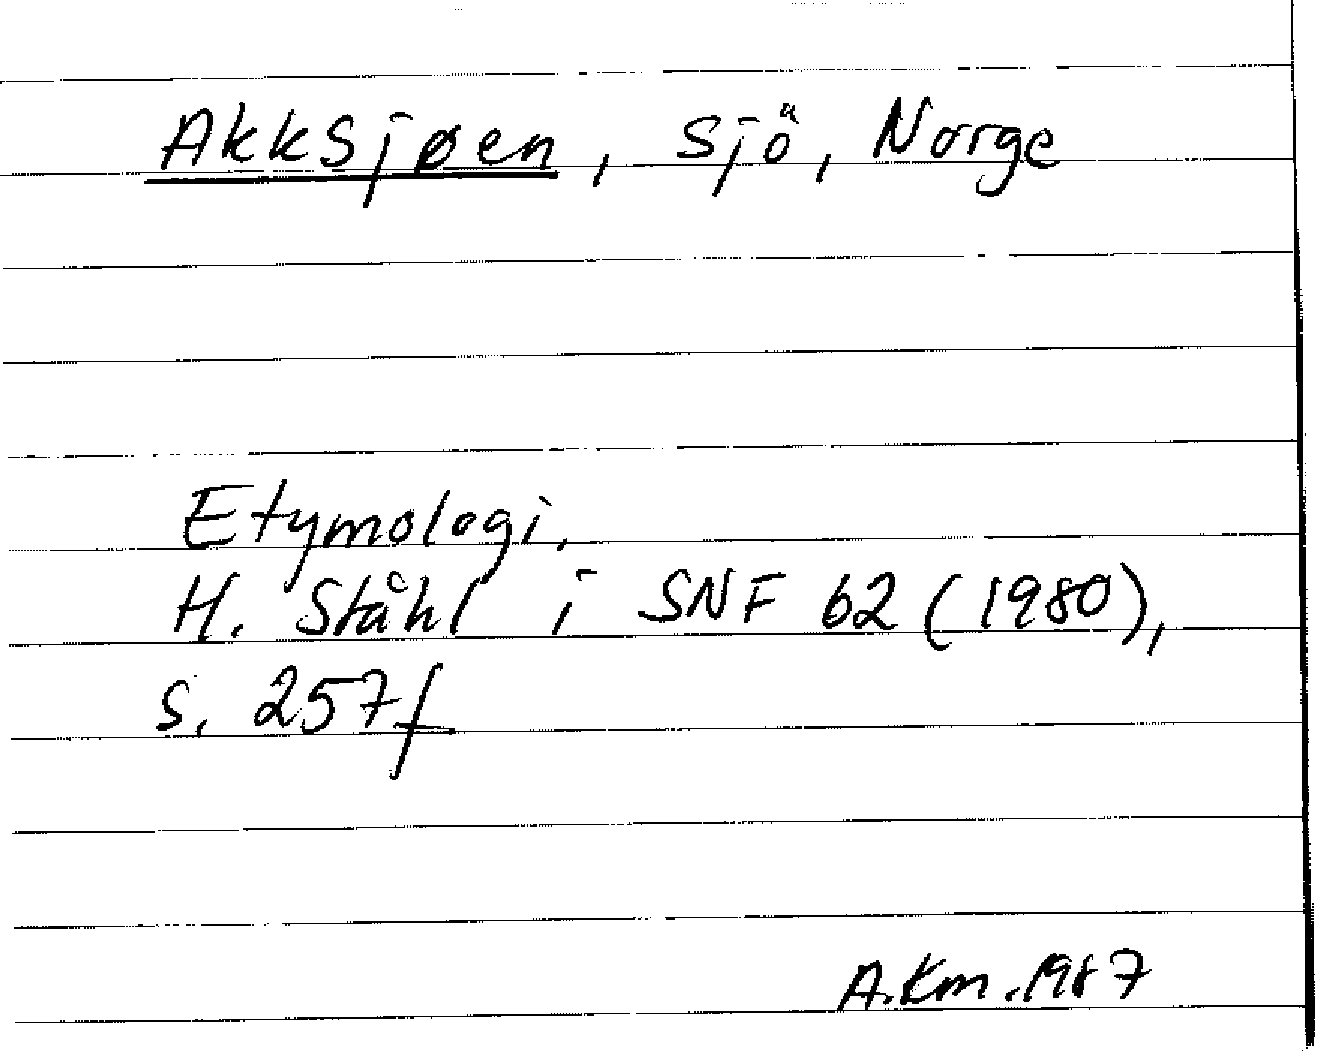 Akksjøen, sjö, Norge
Etymologi.
H. Ståhl i SNF 62 (1980),
s. 257 f
A.Km.1987